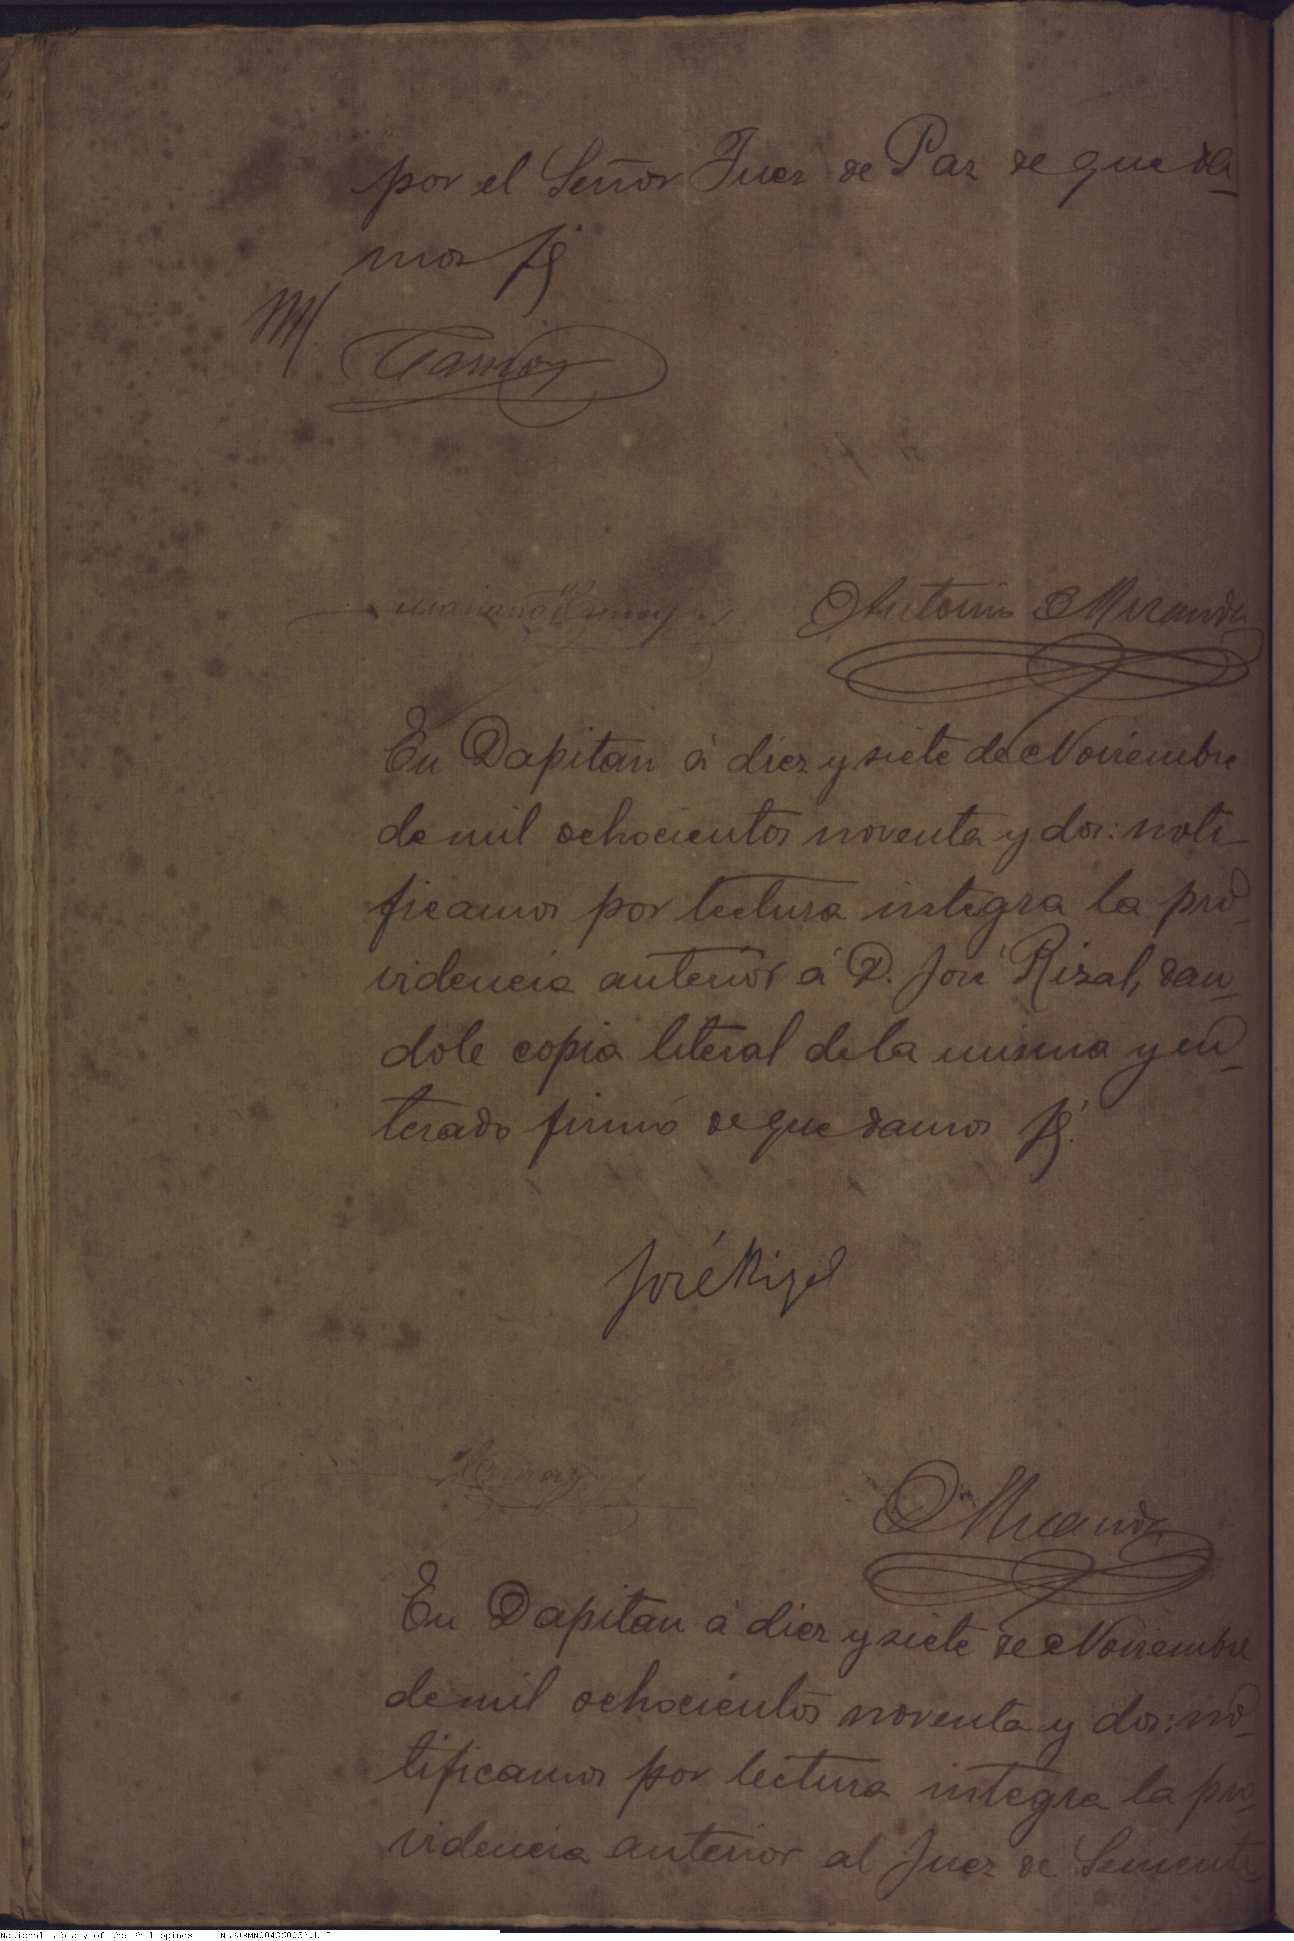 por el Señor Juez de Paz de que da-
mos fé
M
En Dapitan á diez y siete de Noviembre
de mil ochocientos noventa y dos: noti-
ficamos por lectura integra la pro-
videncia anterior á D. José Rizal, dan-
dole copia literal de la misma y en-
terado firmó de que damos fé.
Antonio Miranda
José Rizal
Miranda
En Dapitan á diez y siete de Noviembre
de mil ochocientos noventa y dos: no-
tificamos por lectura integra la pro-
videncia anterior al Juez de Semente
National Library of the Philippines